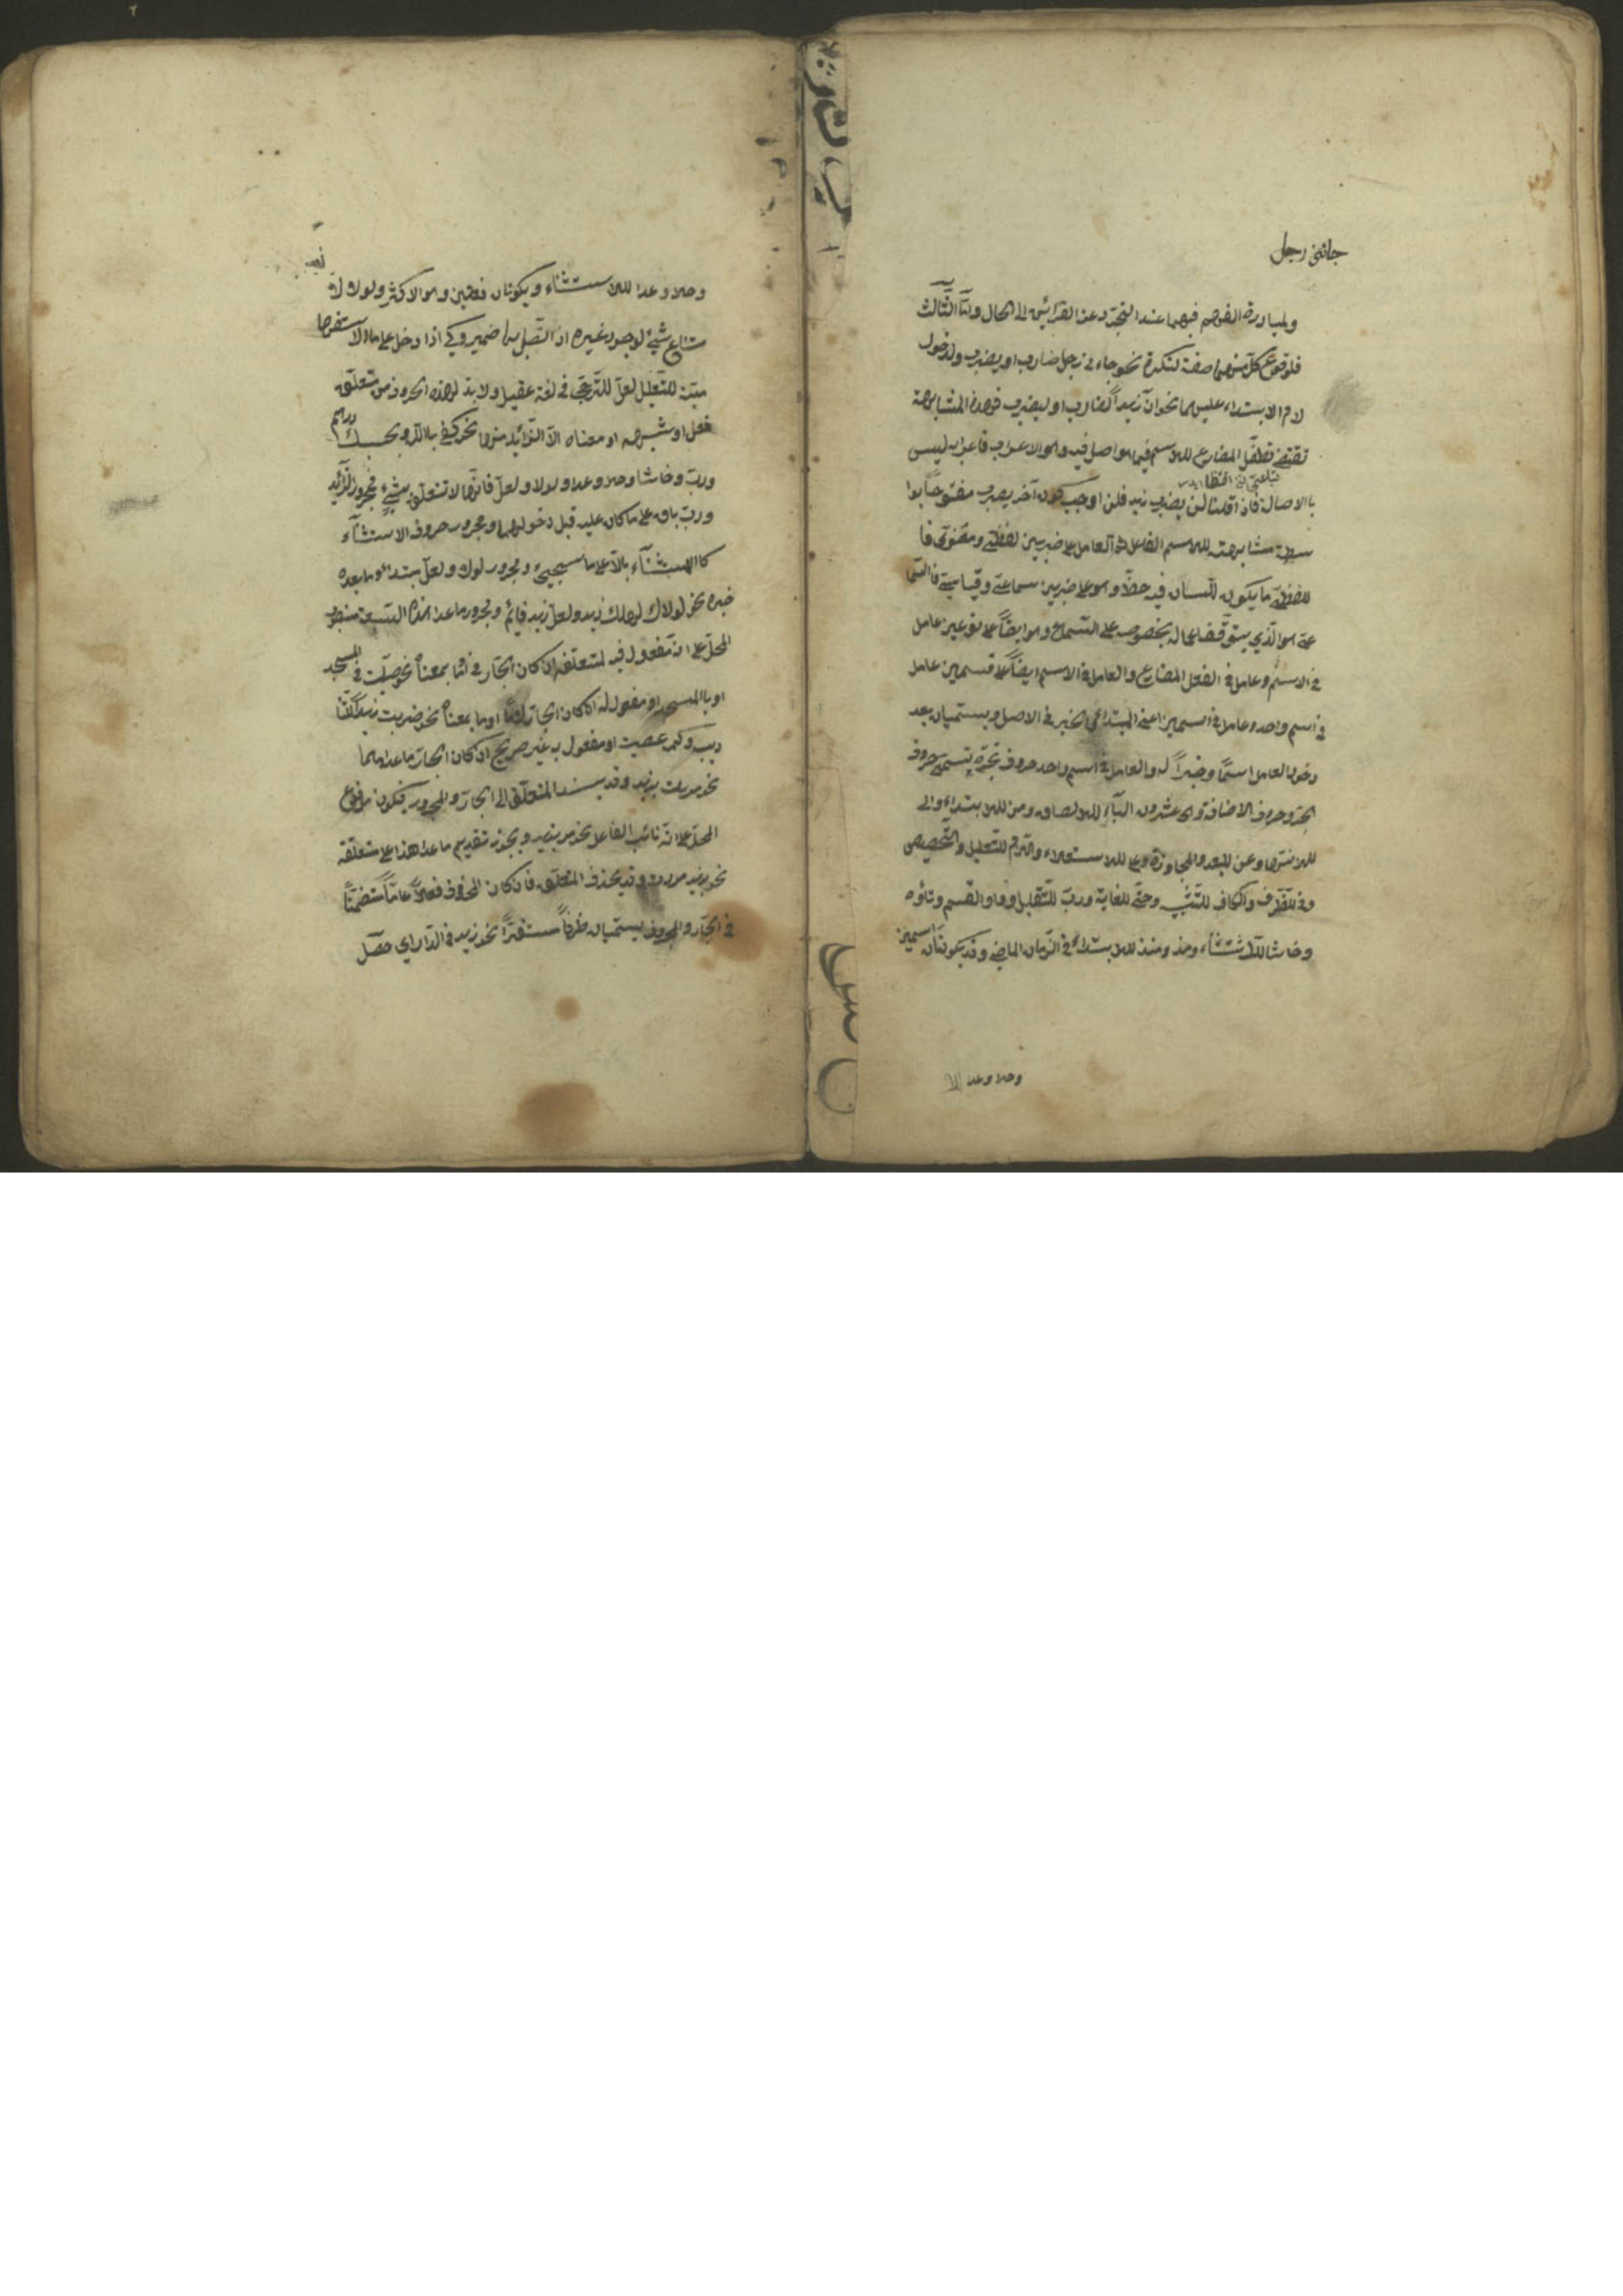 جائنى رجل
ولمبادرة الفهم فيهما عند التجرد عن القرائن الى الحال ولنا الثالث
فلوقوع كل منهما صفة لنكرة نحو جاءنى رجل ضارب او يضرب ولدخول
لام الابتداء عليهما نحو ان زيدا لضارب او ليضرب فهذه المشابهة
تقتضى تطفل المضارع للاسم فيما هو اصل فيه وهو الاعراب فاعرابه ليس
بالاصالة فاذا قلنا لن يضرب زيد فلن اوجب كون آخر يضرب مفتوحا بوا
سطة مشابهته للاسم الفاعل ثم العامل على ضربين لفظى ومعنوى فا
للفظى ما يكون للسان فيه حظ وهو على ضربين سماعى وقياسى فالسما
عى هو الذي يتوقف اعماله بخصوصه على السماع وهو ايضا على نوعين عامل
فى الاسم وعامل فى الفعل المضارع والعامل فى الاسم ايضا على قسمين عامل
فى اسم واحد وعامل فى اسمين اعنى المبتداء والخبر فى الاصل ويسميان بعد
دخول العامل اسما وخبرا له والعامل فى اسم واحد حروف تجره تسمى حروف
الجر وحروف الاضافة وهى عشرون الباء للالصاق ومن للابتداء والى
للانتهاء وعن للبعد والمجاوزة وعلى للاستعلاء واللام للتعليل والتخصيص
وفى للظرف والكاف للتشبيه وحتى للغاية ورب للتقليل وواو القسم وتاؤه
وحاشا للاستثناء ومذ ومنذ للابتداء فى الزمان الماضى وقد يكونان اسمين
وخلا وعدا
وخلا وعدا للاستثناء ويكونان فعلين وهو الاكثر ولولا لا
متناع شيئ لوجود غيره اذا اتصل بها ضمير وكى اذا دخل على ما الاستفها
مية للتعليل لعل للترجى فى لغة عقيل ولا بد لهذه الحروف من متعلق
فعل او شبهه او معناه الا الزائد منها نحو كفى بالله وبحسبك درهم
ورب وحاشا وخلا وعدا ولولا ولعل فانها لا تتعلق بشيئ فمجرور الزائد
ورب باق على ما كان عليه قبل دخولهما ومجرور حروف الاستثناء
كالمستثناء بالا على ما سيجيئ ومجرور لولا ولعل مبتداء وما بعده
خبره نحو لولاك لهلك زيد ولعل زيد قائم ومجرور ما عدا هذه السبعة منصوب
المحل على انه مفعول فيه لمتعلقه ان كان الجار فى او ما بمعناه نحو صليت فى المسجد
او بالمسجد او مفعول له ان كان الجار لاما او ما بمعناه نحو ضربت زيدا للتأ
ديب وكيم عصيت او مفعول به غير صريح ان كان الجار ما عداهما
نحو مررت بزيد وقد يسند المتعلق الى الجار والمجرور فيكون مرفوع
المحل على انه نائب الفاعل نحو مر بزيد ويجوز تقديم ما عدا هذا على متعلقه
نحو بزيد مررت وقد يحذف المتعلق فان كان المحذوف فعلا عاما متضمنا
فى الجار والمجرور يسميان ظرفا مستقرا نحو زيد فى الدار اي حصل